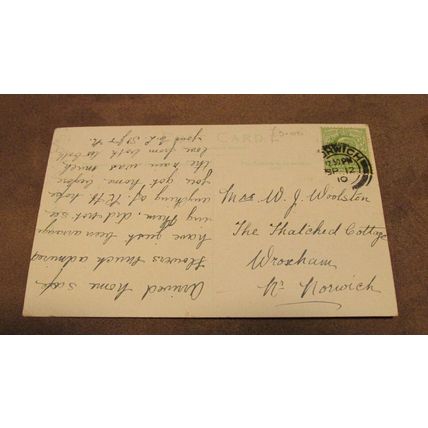 CARD
NORWICH
SP 12
10
Mrs W. J. Woolston
The Thatched Cottage
Wroxham
Nr Norwich
Arrived home safe
flowers much admired
have just been arrang
ing them did not see
anything of hope
you got home before
the rain was much
love from both to both